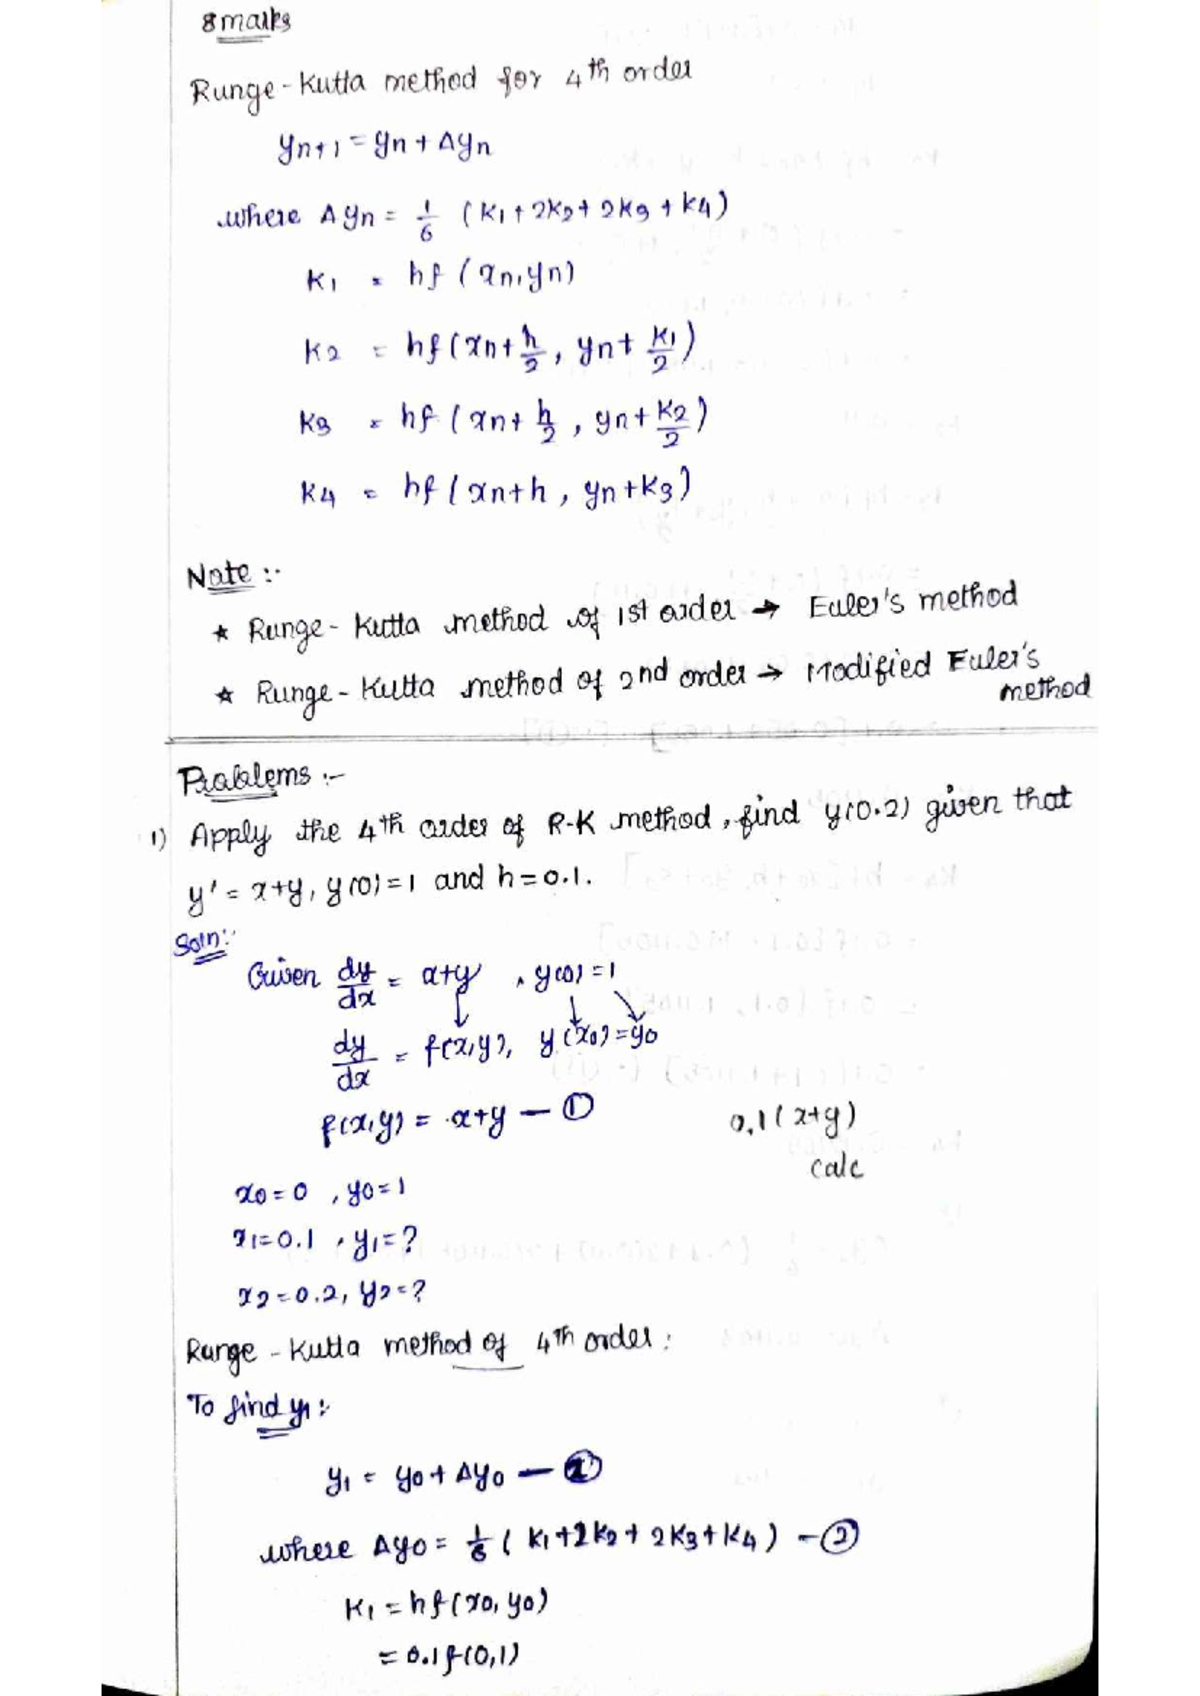 8 marks
Runge-Kutta method for 4th order
yn+1 = yn + Δyn
where Δyn = 1/6 (K1 + 2K2 + 2K3 + K4)
K1 = hf (xn, yn)
K2 = hf (xn + h/2, yn + K1/2)
K3 = hf (xn + h/2, yn + K2/2)
K4 = hf (xn+h, yn+K3)
Note :-
* Runge-Kutta method of 1st order → Euler's method
* Runge-Kutta method of 2nd order → Modified Euler's
method
Problems :-
1) Apply the 4th order of R-K method, find y(0.2) given that
y' = x+y, y(0)=1 and h=0.1.
Soln:-
Given dy/dx = x+y, y(0)=1
dy/dx = f(x,y), y(x0)=y0
f(x,y) = x+y — ①
0.1(x+y)
calc
x0=0, y0=1
x1=0.1, y1=?
x2=0.2, y2=?
Runge-Kutta method of 4th order:
To find y1:-
y1 = y0 + Δy0 — ②
where Δy0 = 1/6 (K1+2K2+2K3+K4) — ②
K1 = hf(x0, y0)
= 0.1f(0,1)